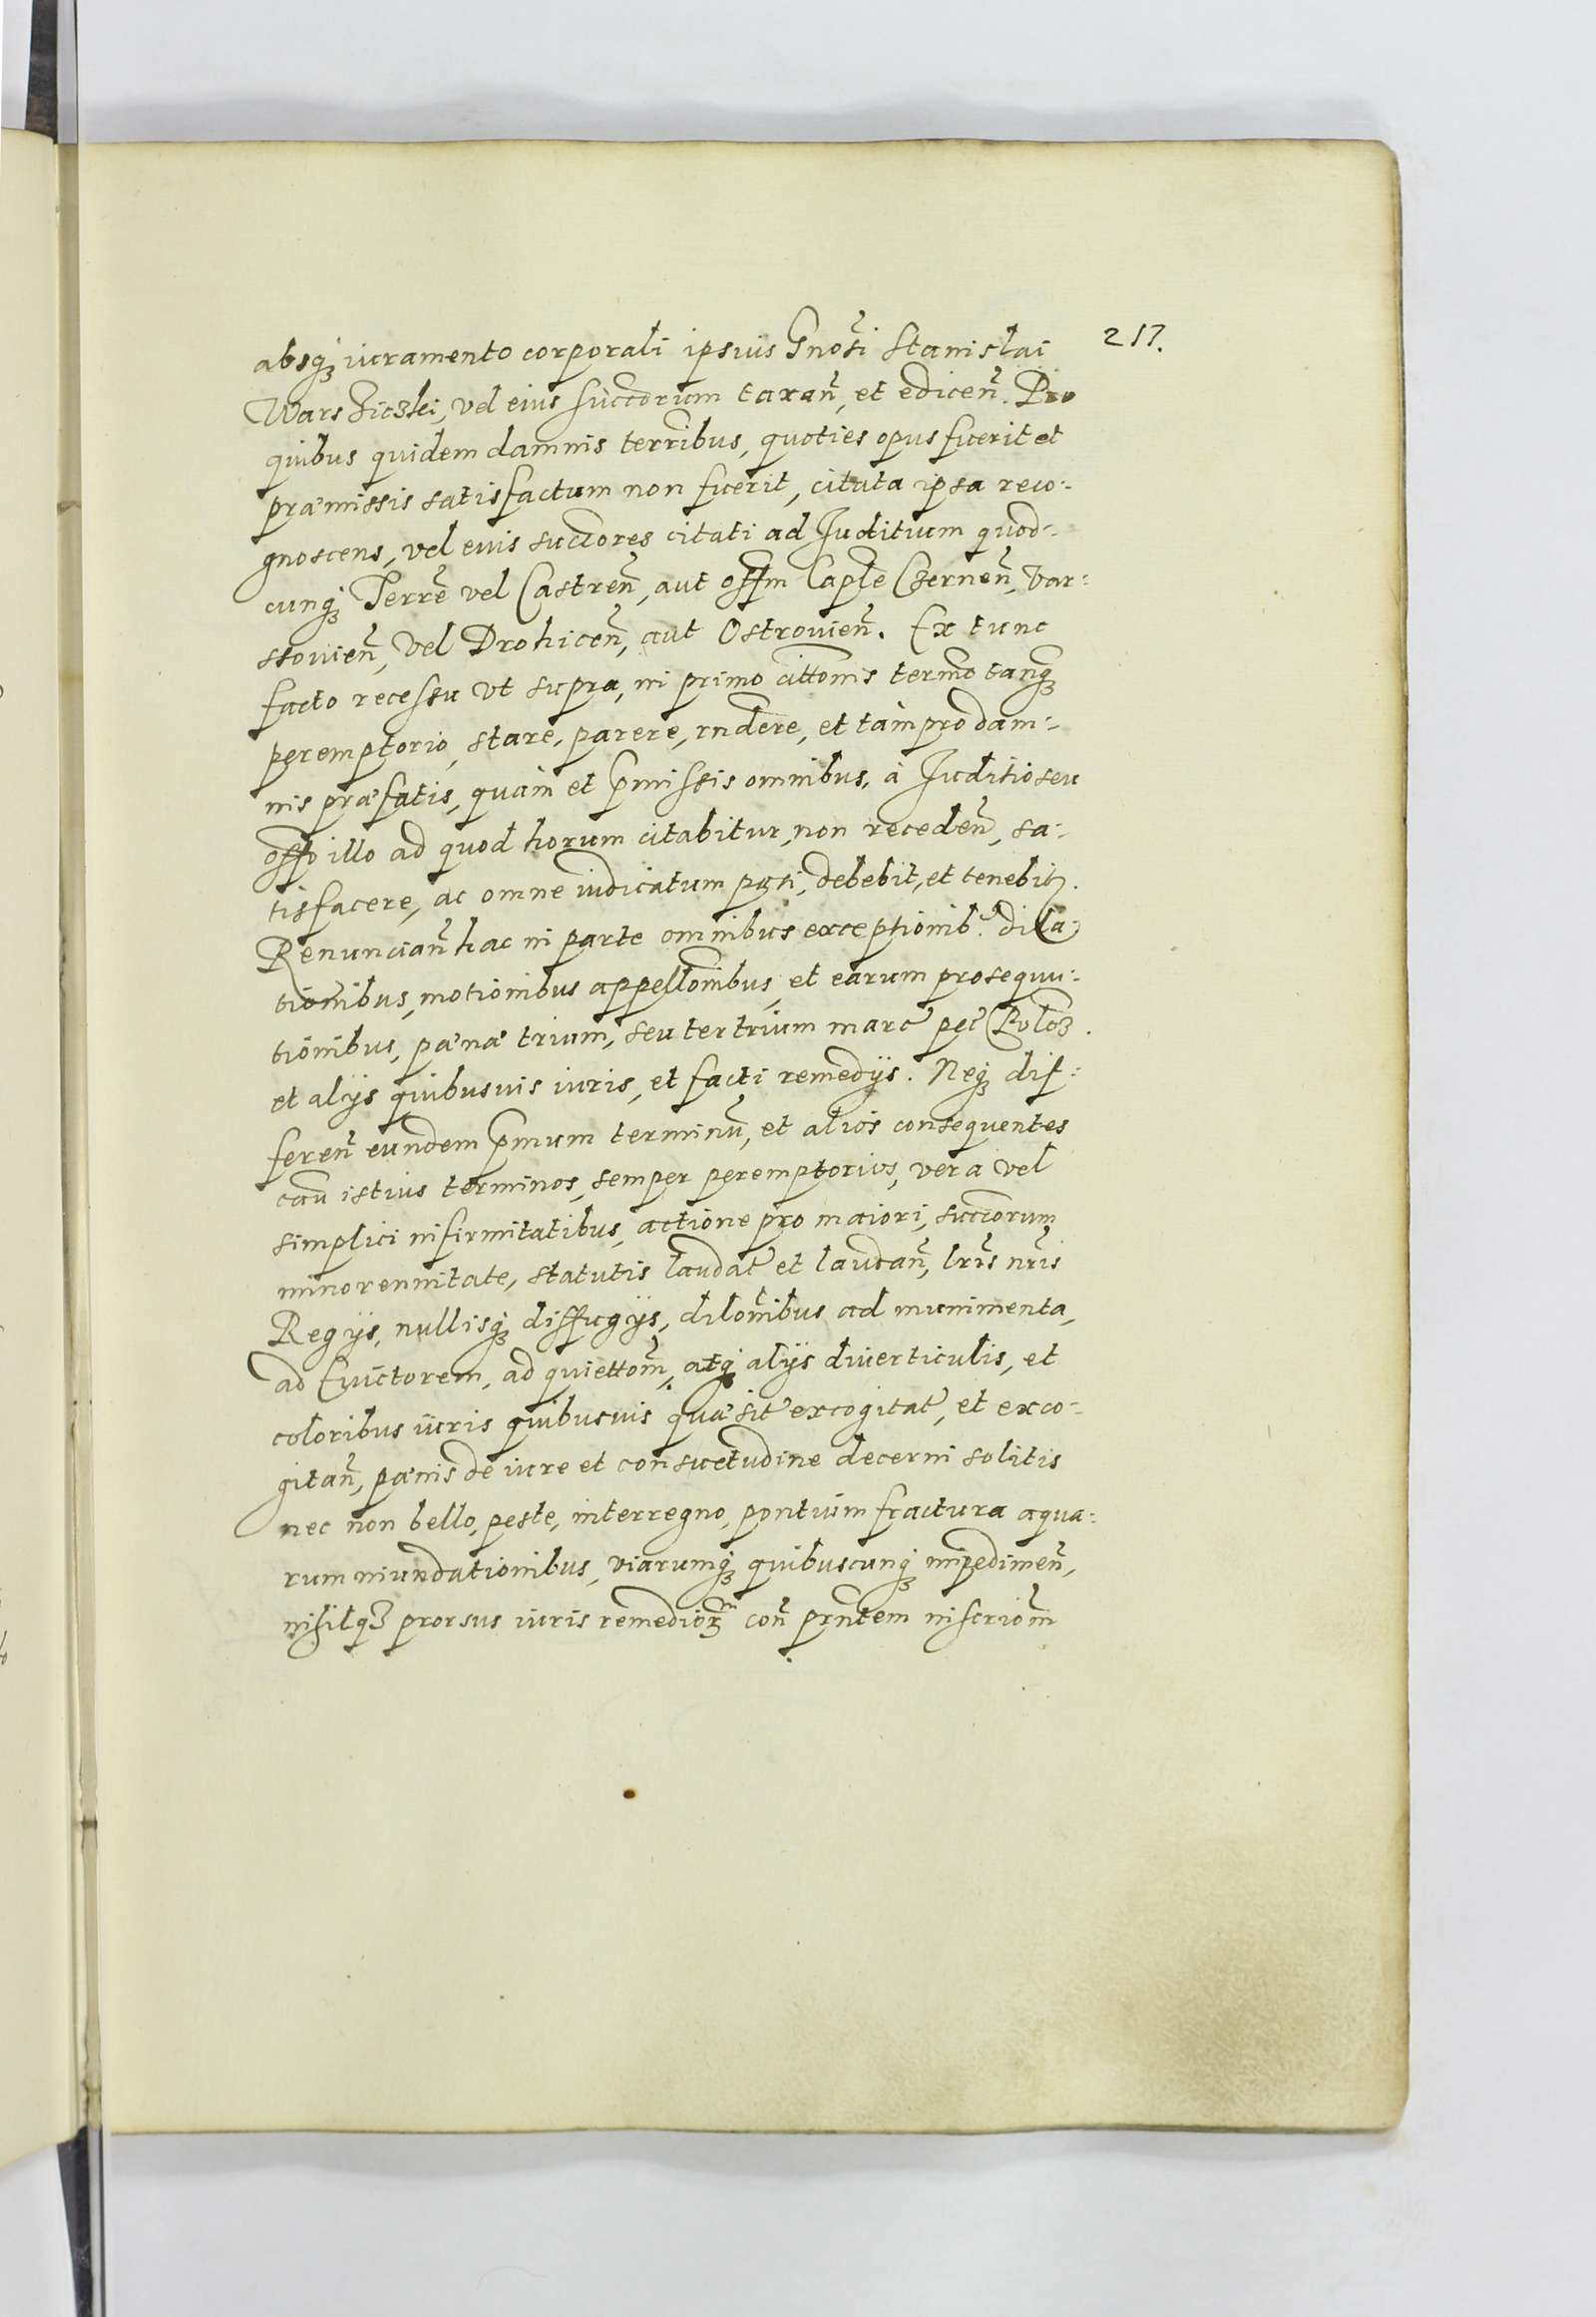 217.
absq; iuramento corporali ipsius Gnosi Stanislai
Warsziczki, vel eius succorum taxan, et edicen. Pro
quibus quidem damnis terribus, quoties opus fuerit et
præmissis satisfactum non fuerit, citata ipsa reco:
gnoscens, vel eius succores citati ad Juditium quod:
cunq; Terre vel Castren, aut offm Caple Czernen, Var:
ssouien, vel Drohicen, aut Ostrouien. Ex tunc
facto recessu vt supra, in primo cittonis termo tanq;
peremptorio, stare, parere, rndere, et tàm pro dam:
nis præfatis, quàm et pmissis omnibus, à Juditio seu
offo illo ad quod horum citabitur, non receden, sa:
tisfacere, ac omne iudicatum pati, debebit, et tenebit.
Renuncian hac in parte omnibus exceptionib. dila:
tionibus, motionibus appellonibus, et earum prosequu:
tionibus, pæna trium, seu ter trium marc pec Poloz.
et alÿs quibusuis iuris, et facti remedÿs. Neq; dif:
feren eundem pmum terminu, et alios consequentes
cau istius terminos, semper peremptorios, vera vel
simplici infirmitatibus, actione pro maiori, succorum
minorennitate, statutis laudat et laudan, lris nris
Regÿs, nullisq; diffugÿs, dilonibus ad munimenta,
ad Euictorem, ad quiettom, atq; alÿs diuerticulis, et
coloribus iuris quibusuis quæsit excogitat, et exco:
gitan, pænis de iure et consuetudine decerni solitis
nec non bello, peste, interregno, pontium fractura aqua:
rum inundationibus, viarumq; quibuscunq; impedimen,
nihilq; prorsus iuris remediorm con prntem inscriom